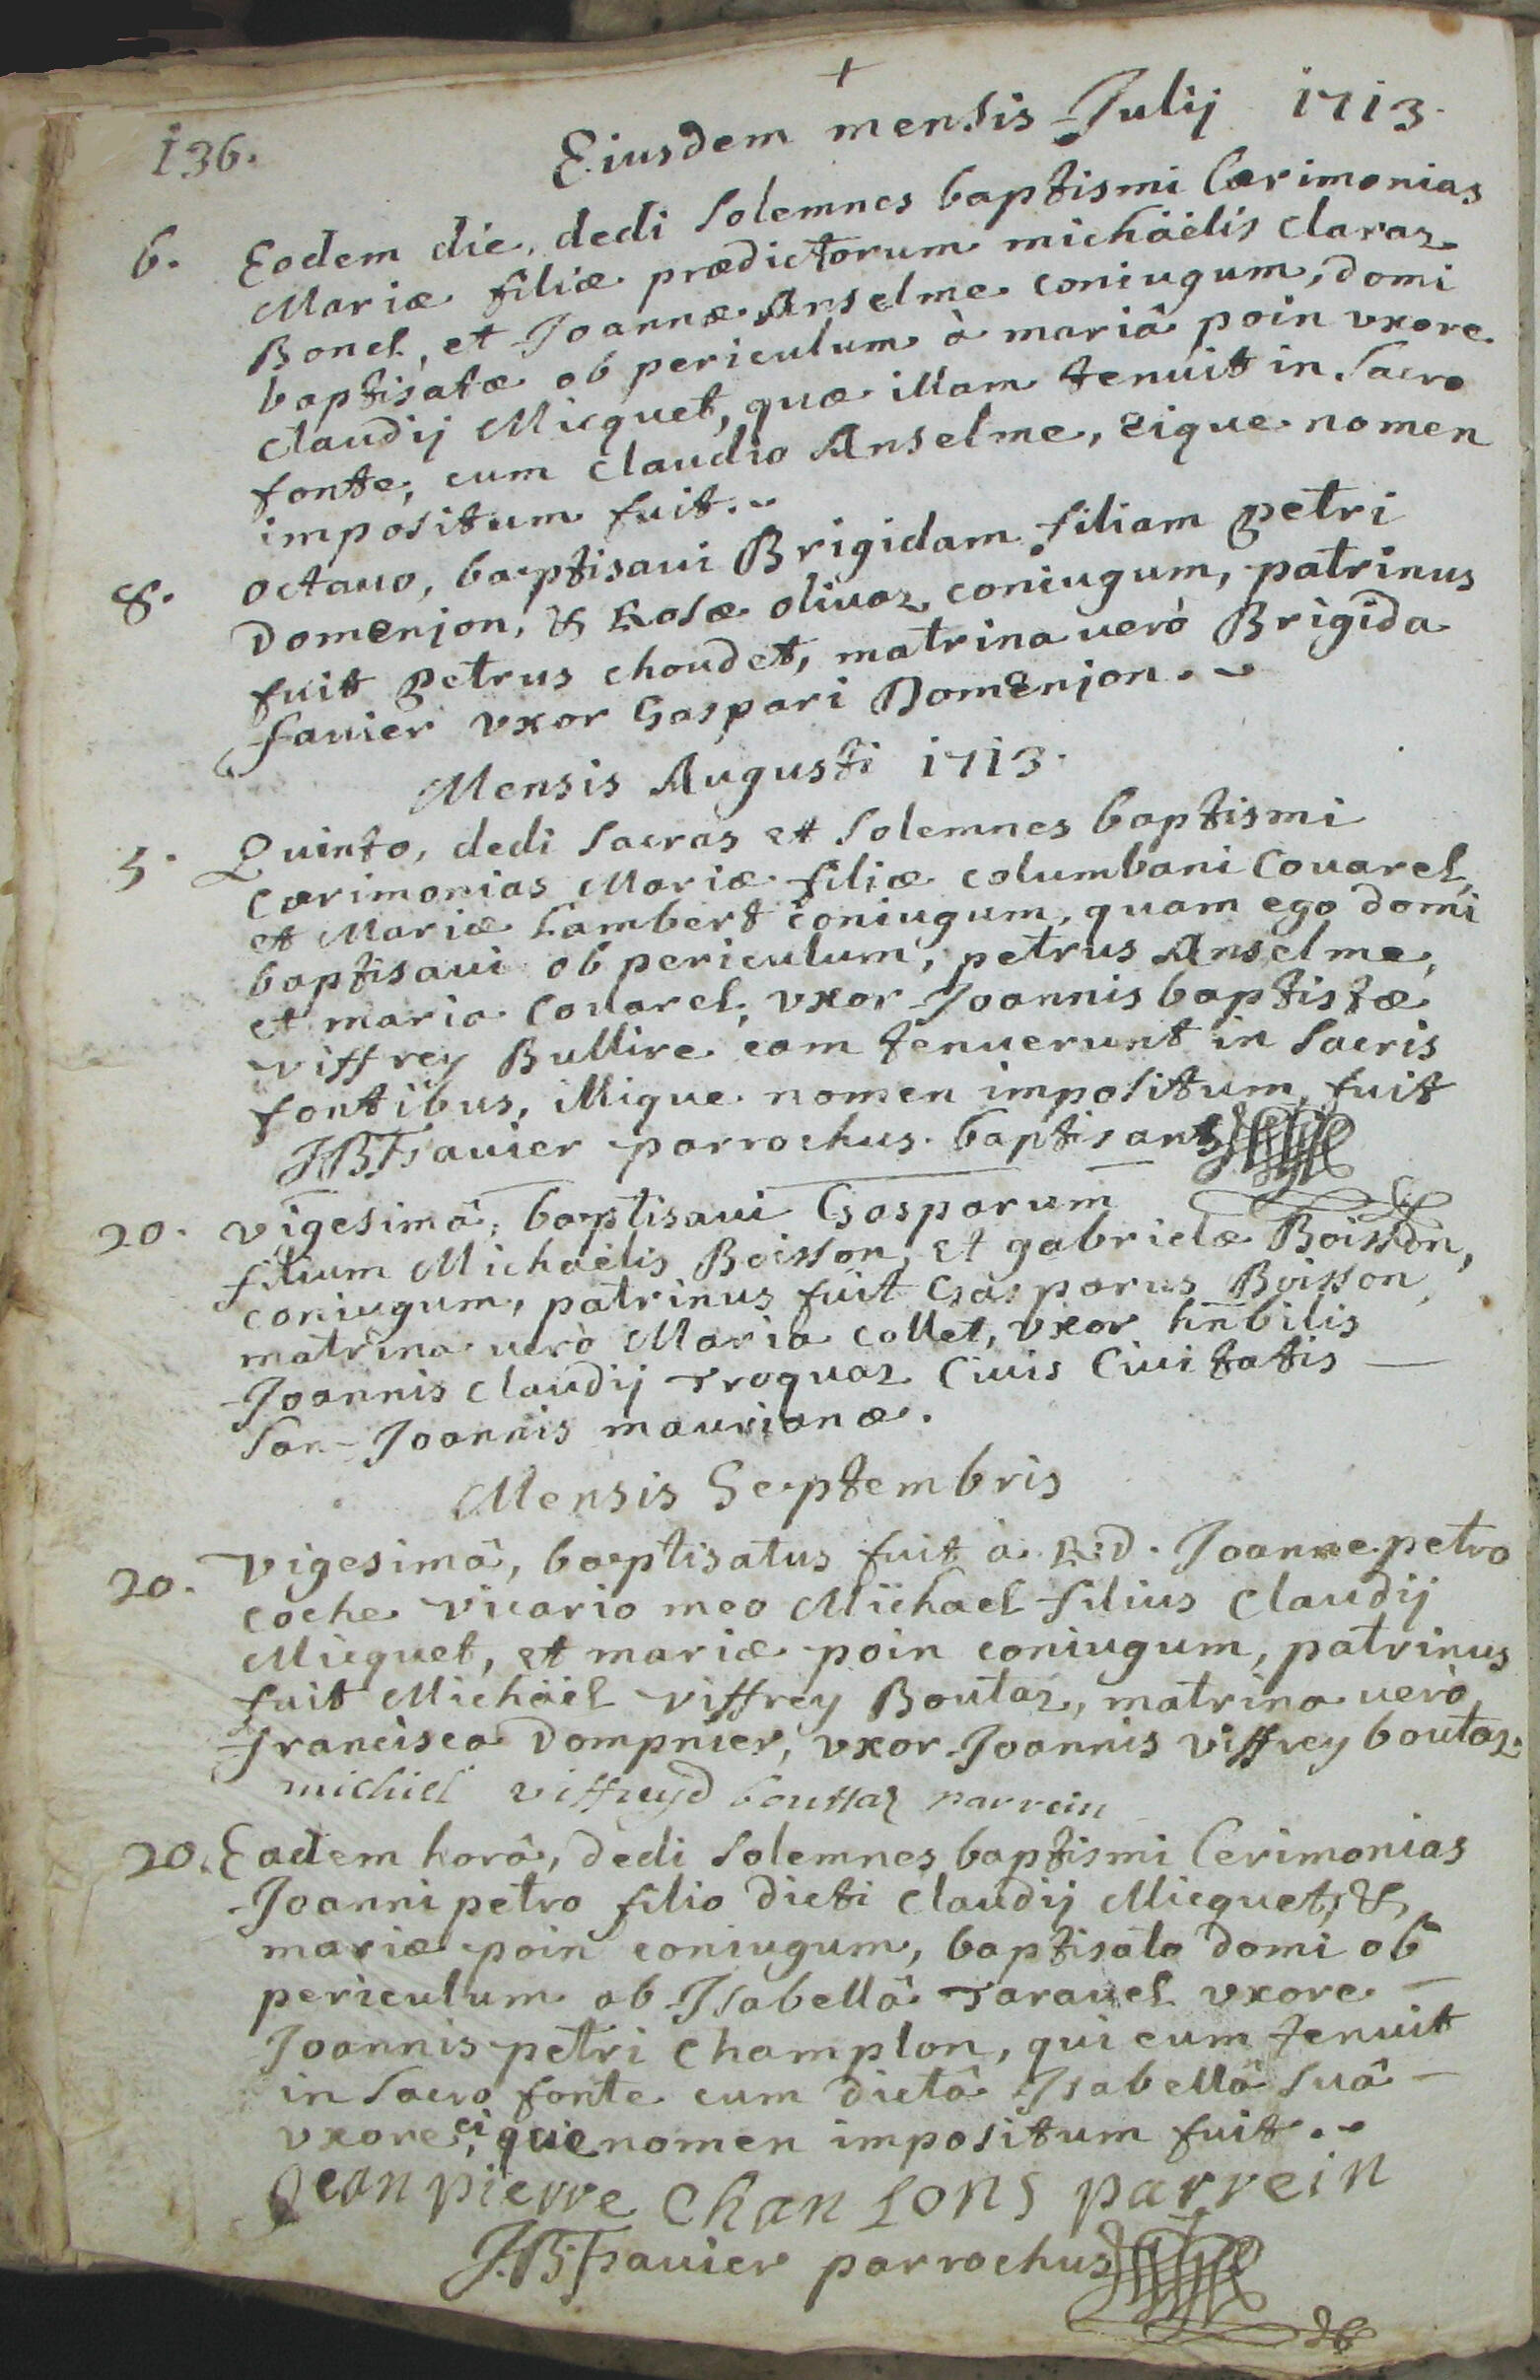 +
136. Eiusdem mensis Julij 1713.
6. Eodem die, dedi solemnes baptismi Cærimonias
Mariæ filiæ prædictorum michäelis claraz
Bonel, et Joannæ Anselme coniugum, domi
baptisatæ ob periculum à mariâ poin vxore
claudij Micquet, quæ illam tenuit in sacro
fonte, cum claudio Anselme, eique nomen
impositum fuit.
8. octauo, baptisaui Brigidam filiam petri
Domenjon, & Rosæ oliuaz coniugum, patrinus
fuit petrus choudet, matrina uerò Brigida
fauier vxor Gaspari Domenjon.
Mensis Augusti 1713.
5. Quinto, dedi sacras et solemnes baptismi
cærimonias Mariæ filiæ columbani Couarel,
et Mariæ Lambert coniugum, quam ego domi
baptisaui ob periculum, petrus Anselme,
et maria Couarel, vxor Joannis baptistæ
viffrey Bullire eam tenuerunt in sacris
fontibus, illique nomen impositum fuit
JBFauier parrochus baptisans
20. vigesimâ, baptisaui Gasparum
filium Michaëlis Boisson, et gabrielæ Boisson,
coniugum, patrinus fuit Gasparus Boisson,
matrina uerò Maria collet, vxor hnbilis
Joannis claudij Troquaz Ciuis Ciuitatis
San-Joannis maurianæ.
Mensis Septembris
20. Vigesimâ, baptisatus fuit à R.D. Joanne petro
coche vicario meo Michael filius claudij
Micquet, et mariæ poin coniugum, patrinus
fuit Michäel viffrey Boutaz, matrina uerò,
francisca Dompnier, vxor Joannis viffrey boutaz.
michiel viffreyd bouttaz parrein
20. Eadem horâ, dedi solemnes baptismi Cerimonias
Joanni petro filio dicti claudij Micquet, &
mariæ poin coniugum, baptisato domi ob
periculum ab Isabellâ Tarauel vxore
Joannis petri Champlon, qui eum tenuit
in sacro fonte cum dictâ Isabellâ suâ
vxore, eique nomen impositum fuit.
Jean pierre Chanlons parrein
J.B.Fauier parrochus